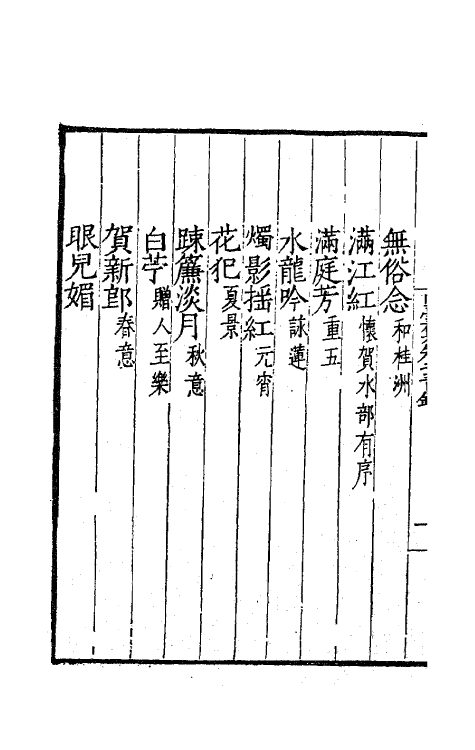 無俗念和桂洲
滿江紅懷賀水部有序
滿庭芳重五
水龍吟詠蓮
燭影揺紅元宵
花犯夏景
踈簾淡月秋意
白苧贈人至樂
賀新郎春意
眼兒媚